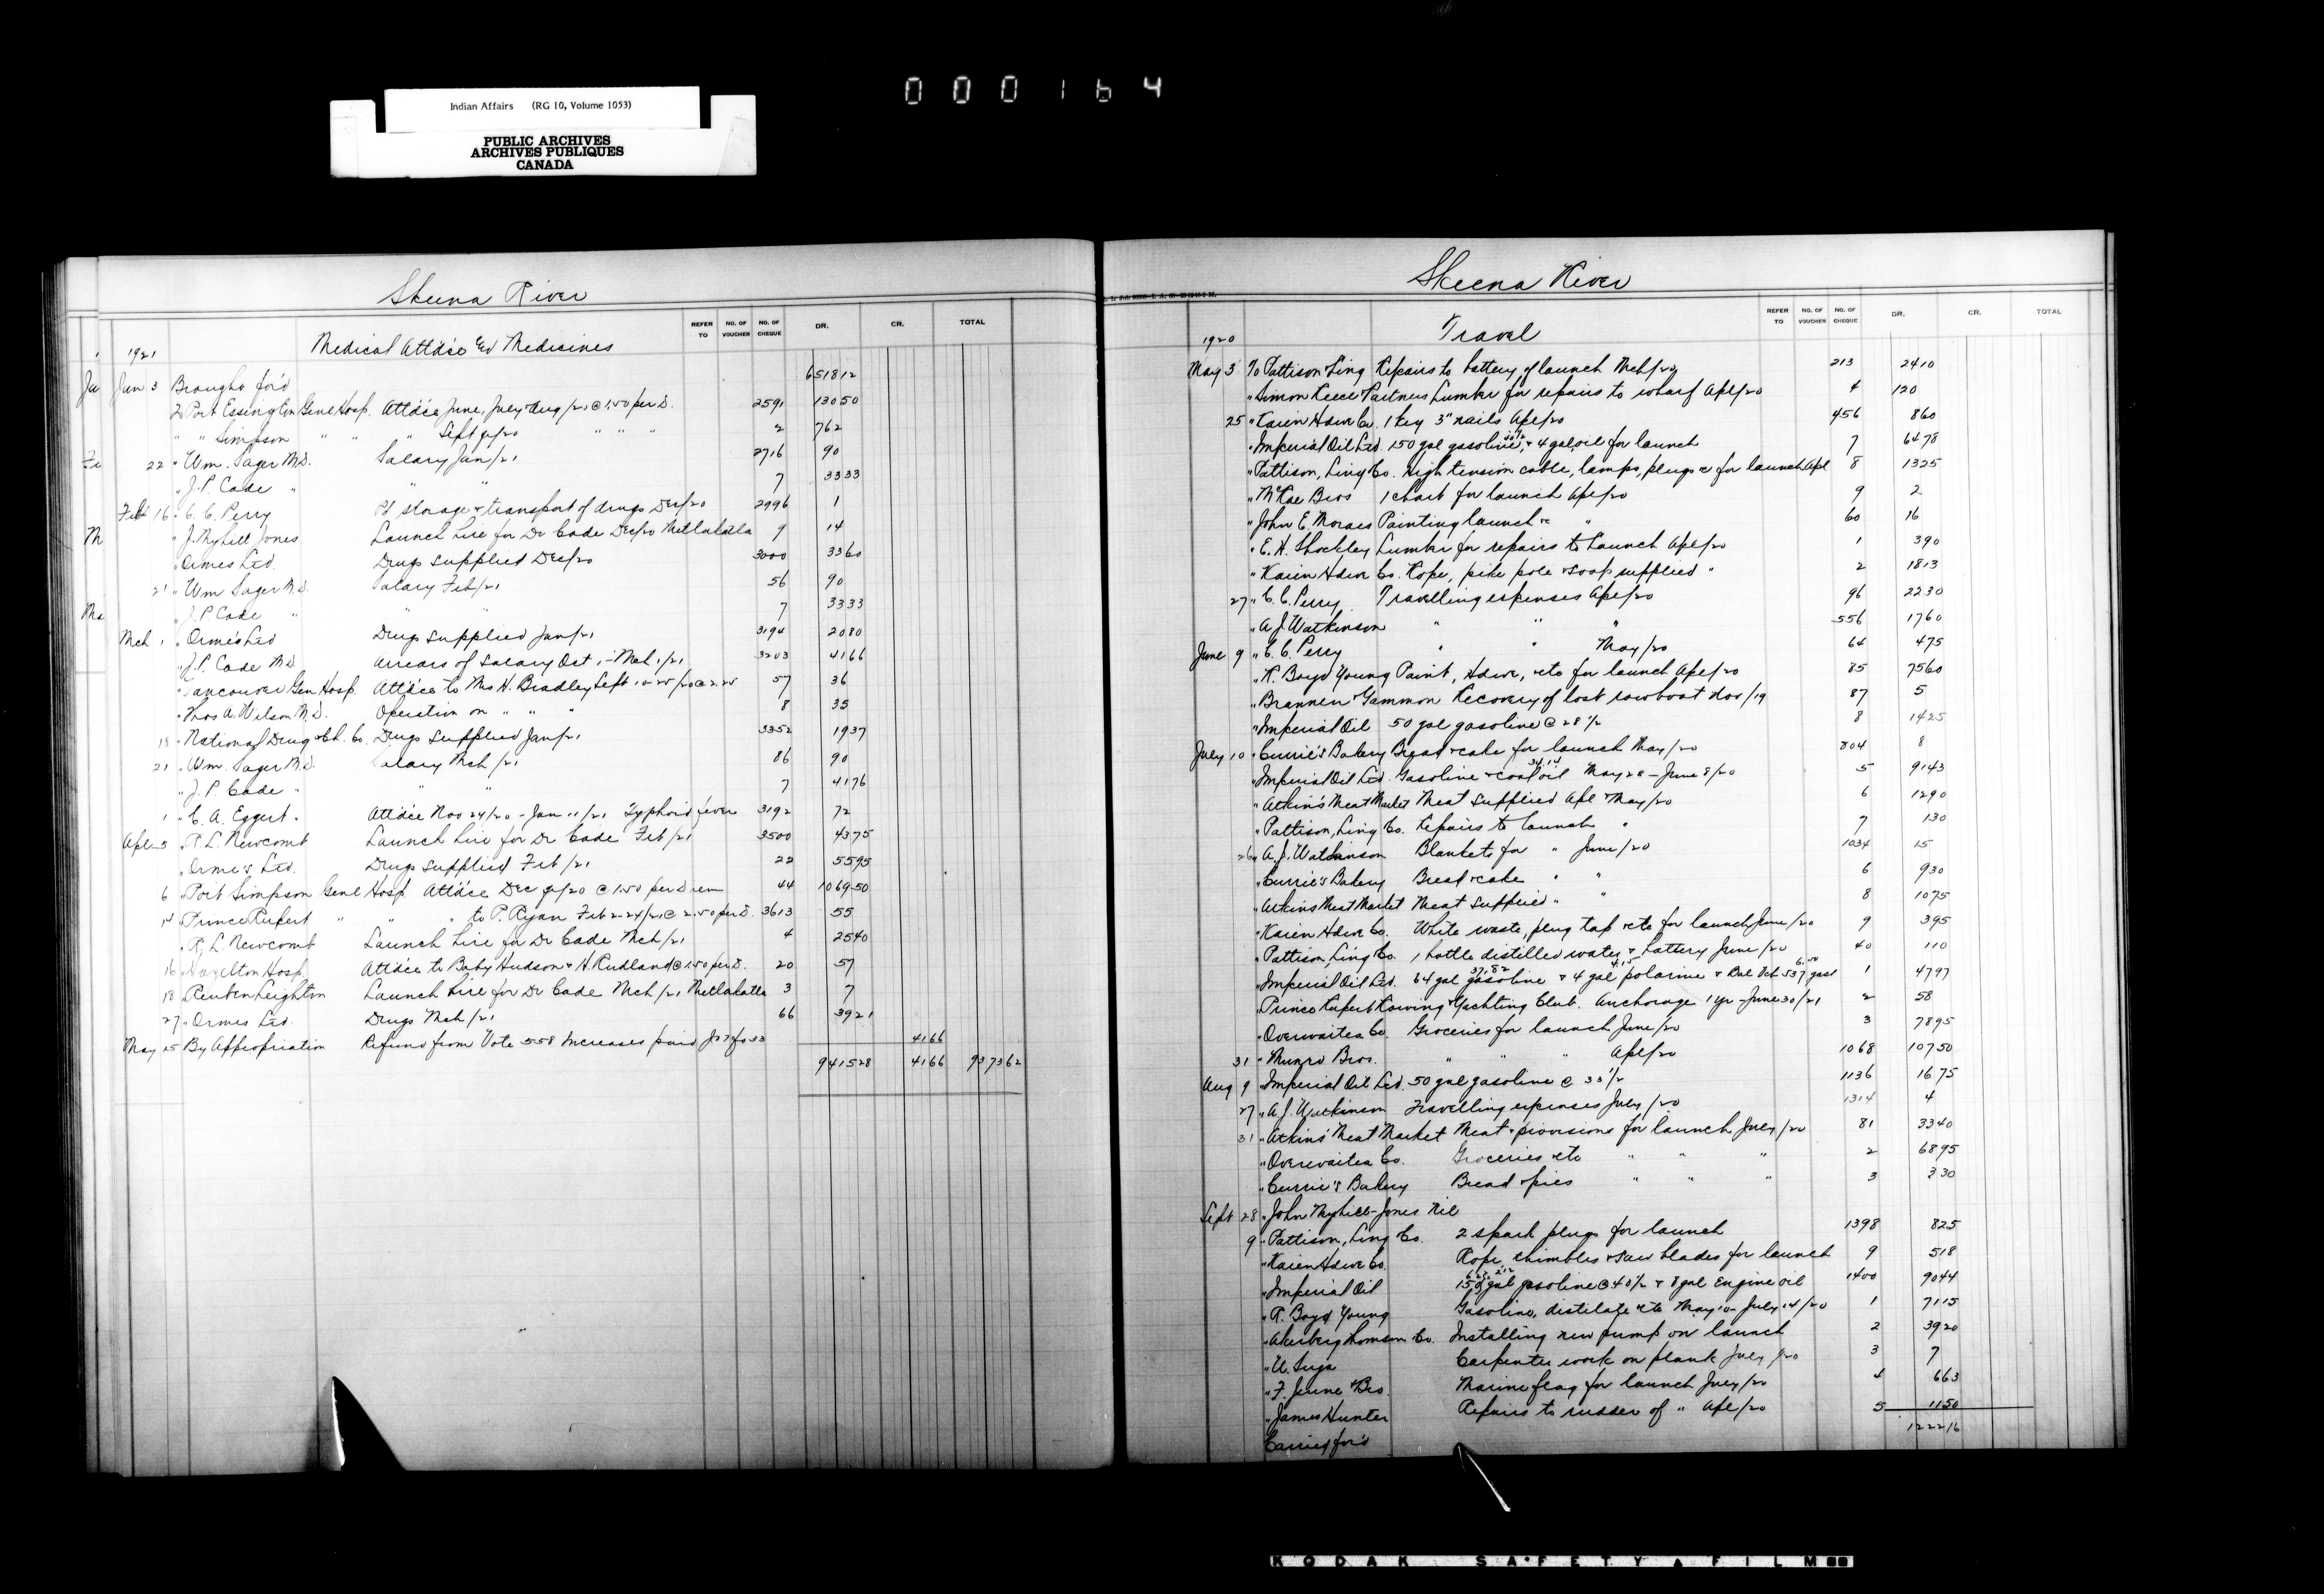 000164
Indian Affairs (RG 10, Volume 1053)
PUBLIC ARCHIVES
ARCHIVES PUBLIQUES
CANADA
Skeena River
REFER TO NO. OF VOUCHER NO. OF CHEQUE DR. CR. TOTAL
1921 Medical Attd'ce & Medicines
Jan 3 Brought for'd 6518 12
2 Port Essington Genl Hosp. Attd'ce June, July & Aug/20 @ 1.50 per D. 2591 130 50
" " Simpson " " " Sept qr/20 " " " 2 762
22 " Wm. Sager M.D. Salary Jan/21 2716 90
" J.P. Cade " " " 7 33 33
Feb 16 " C.C. Perry Pd storage & transport of drugs Dec/20 2996 1
" J. Myhill Jones Launch hire for Dr Cade Dec/20 Metlakatla 9 14
" Ormes Ltd. Drugs supplied Dec/20 3000 33 60
21 " Wm Sager M.D. Salary Feb/21 56 90
" J.P. Cade " " " 7 33 33
Mch 1 " Ormes Ltd Drugs supplied Jan/21 3194 20 80
" J.P. Cade M.D. Arrears of salary Oct 1 - Mch 1/21 3203 41 66
" Vancouver Gen Hosp. Attd'ce to Mrs H. Bradley Sept 10-25/20 @ 2.25 57 36
" Thos A. Wilson M.D. Operation on " " " 8 35
18 " National Drug & Ch. Co. Drugs supplied Jan/21 3352 19 37
21 " Wm. Sager M.D. Salary Mch/21 86 90
" J.P. Cade " " " 7 41 76
1 " C.A. Eggert " Attd'ce Nov 24/20 - Jan 11/21 Typhoid fever 3192 72
Apl 5 " R.L. Newcomb Launch hire for Dr Cade Feb/21 3500 43 75
" Orme's Ltd. Drugs supplied Feb/21 22 55 95
6 " Port Simpson Genl Hosp. Attd'ce Dec qr/20 @ 1.50 per Diem 44 1069 50
14 " Prince Rupert " " " to P. Ryan Feb 2-24/21 @ 2.50 per D. 3613 55
" R.L. Newcomb Launch hire for Dr Cade Mch/21 4 25 40
16 Hazelton Hosp. Attd'ce to Baby Hudson & H. Rudland @ 1.50 per D. 20 57
18 " Reuben Leighton Launch hire for Dr Cade Mch/21 Metlakatla 3 7
27 " Ormes Ltd. Drugs Mch/21 66 39 21
May 25 By Appropriation Refund from Vote 558 Increases paid 41 66
9415 28 41 66 9373 62
Skeena River
REFER TO NO. OF VOUCHER NO. OF CHEQUE DR. CR. TOTAL
1920 Travel
May 3 To Pattison Ling Repairs to battery of launch Mch/20 213 24 10
" Simon Reece & Partners Lumber for repairs to wharf Apl/20 4 1 20
25 " Kaien Hdwe Co. 1 keg 3" nails Apl/20 456 8 60
" Imperial Oil Ltd. 150 gal gasoline & 4 gal oil for launch 7 64 78
" Pattison, Ling Co. High tension cable, lamps, plugs &c for launch Apl 8 13 25
" McRae Bros 1 chart for launch Apl/20 9 2
" John E. Moraes Painting launch &c " 60 16
" E.H. Shockley Lumber for repairs to launch Apl/20 1 3 90
" Kaien Hdwe Co. Rope, pike pole & soap supplied " 2 18 13
27 " C.C. Perry Travelling expenses Apl/20 96 22 30
" A.J. Watkinson " " " 556 17 60
June 9 " C.C. Perry " May/20 64 4 75
" R. Boyd Young Paint, Hdwe, etc for launch Apl/20 85 75 60
" Brannen & Gammon Recovery of lost rowboat Nov/19 87 5
" Imperial Oil 50 gal gasoline @ 28 1/2 8 14 25
July 10 " Currie's Bakery Bread & cake for launch May/20 804 8
" Imperial Oil Ltd. Gasoline & coal oil May 28 - June 8/20 5 91 43
" Atkin's Meat Market Meat supplied Apl & May/20 6 12 90
" Pattison, Ling Co. Repairs to launch " 7 1 30
26 " A.J. Watkinson Blankets for " June/20 1034 15
" Currie's Bakery Bread & cake " " 6 9 30
" Atkins Meat Market Meat supplied " " 8 10 75
" Kaien Hdwe Co. White waste, plug tap etc for launch June/20 9 3 95
" Pattison, Ling Co. 1 bottle distilled water & battery June/20 40 1 10
" Imperial Oil Ltd. 64 gal gasoline & 4 gal polarine & Bal Vch 537 gasl 1 47 97
" Prince Rupert Rowing & Yachting Club. Anchorage 1 yr - June 30/21 2 58
" Overwaitea Co. Groceries for launch June/20 3 78 95
31 " Munro Bros. " " " Apl/20 1068 107 50
Aug 9 " Imperial Oil Ltd. 50 gal gasoline @ 33 1/2 1136 16 75
27 " A.J. Watkinson Travelling expenses July/20 1314 4
31 " Atkins' Meat Market Meat & provisions for launch July/20 81 33 40
" Overwaitea Co. Groceries etc " " " 2 68 95
" Currie's Bakery Bread & pies " " " 3 3 30
Sept 28 " John Myhill-Jones Nil
9 " Pattison, Ling Co. 2 spark plugs for launch 1398 8 25
" Kaien Hdwe Co. Rope, thimbles & saw blades for launch 9 5 18
" Imperial Oil 150 gal gasoline @ 40 1/2 & 8 gal Engine oil 1400 90 44
" R. Boyd Young Gasoline, distilate etc May 10 - July 14/20 1 71 15
" Akerberg Thomson Co. Installing new pump on launch 2 39 20
" U. Suga Carpenter work on plank July/20 3 7
" F. Jeune & Bro. Marine flag for launch July/20 4 6 63
" James Hunter Repairs to rudder of " Apl/20 5 11 50
Carried for'd 1222 16
KODAK SAFETY FILM